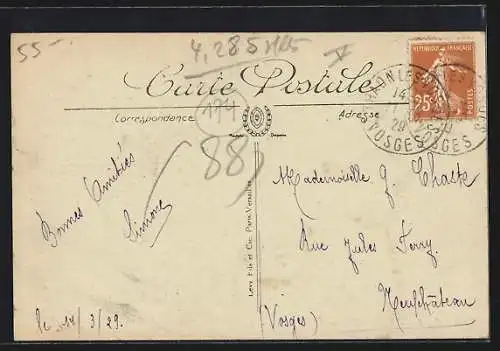 55-
4,285
V
RÉPUBLIQUE FRANÇAISE
25c
POSTES
14
29
VOSGES
VOSGES
Carte Postale
174
Correspondance
Adresse
88
Bonnes Amitiés
Simone
le 14/3/29.
Lévy Fils et Cie, Paris, Versailles
Mademoiselle G. Chaste
Rue Jules Ferry.
Neufchâteau
(Vosges)